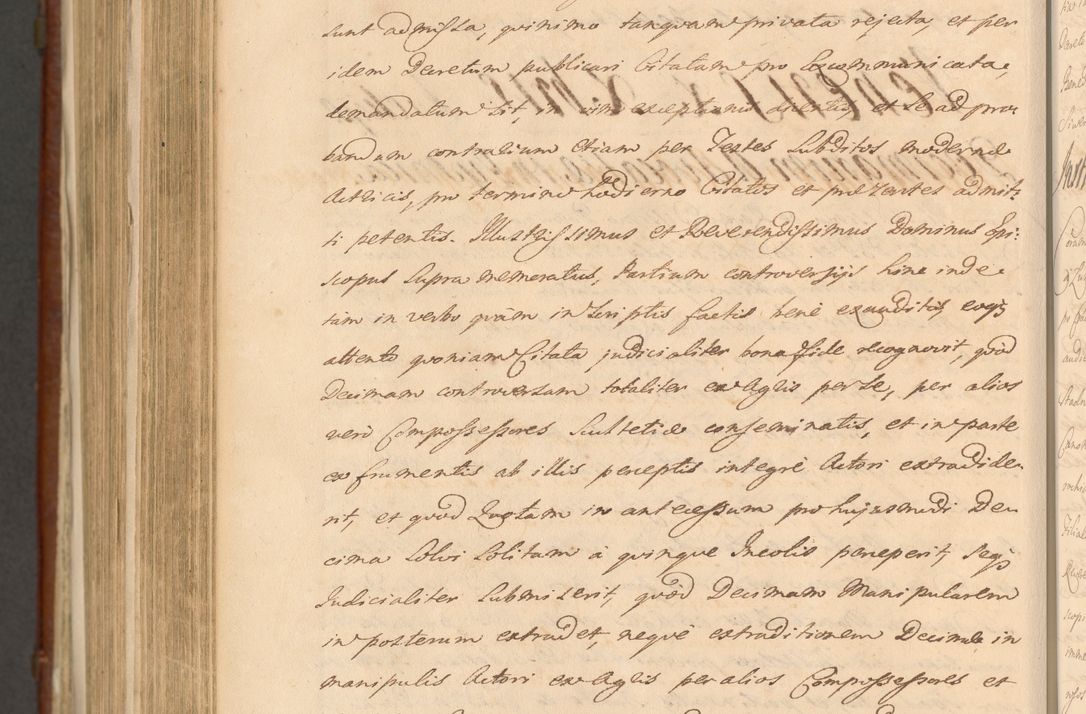 sunt admissa, quinimo tanquam privata rejecta, et per
idem Decretum publicari Citatam pro Excommunicata,
demandatum sit, in vim exceptionis dicentis, et se ad pro:
bandum contrarium etiam per Testes Subditos modernæ
Actricis, pro termino hodierno Citatos et præsentes admit:
ti petentis. Illustrissimus et Reverendissimus Dominus Epi:
scopus supra memeratus, Partium controversijs hinc inde
tàm in verbo quàm in Scriptis factis benè exauditis, eoq;
attento quoniam Citata judicialiter bona fide recognovit, quòd
Decimam controversam totaliter ex Agris per se, per alios
verò Compossessores Scultetiæ conseminatis, et in parte
ex frumentis ab illis perceptis integrè Actori extradide
rit, et quòd Quotam in antecessum pro hujusmodi De
cima Solvi Solitam à quinque Incolis perceperit, seq;
Judicialiter Submiserit, quòd Decimam Manipularem
in posterum extradet, nequè extraditionem Decimæ in
manipulis Actori ex Agris per alios Compossessores et